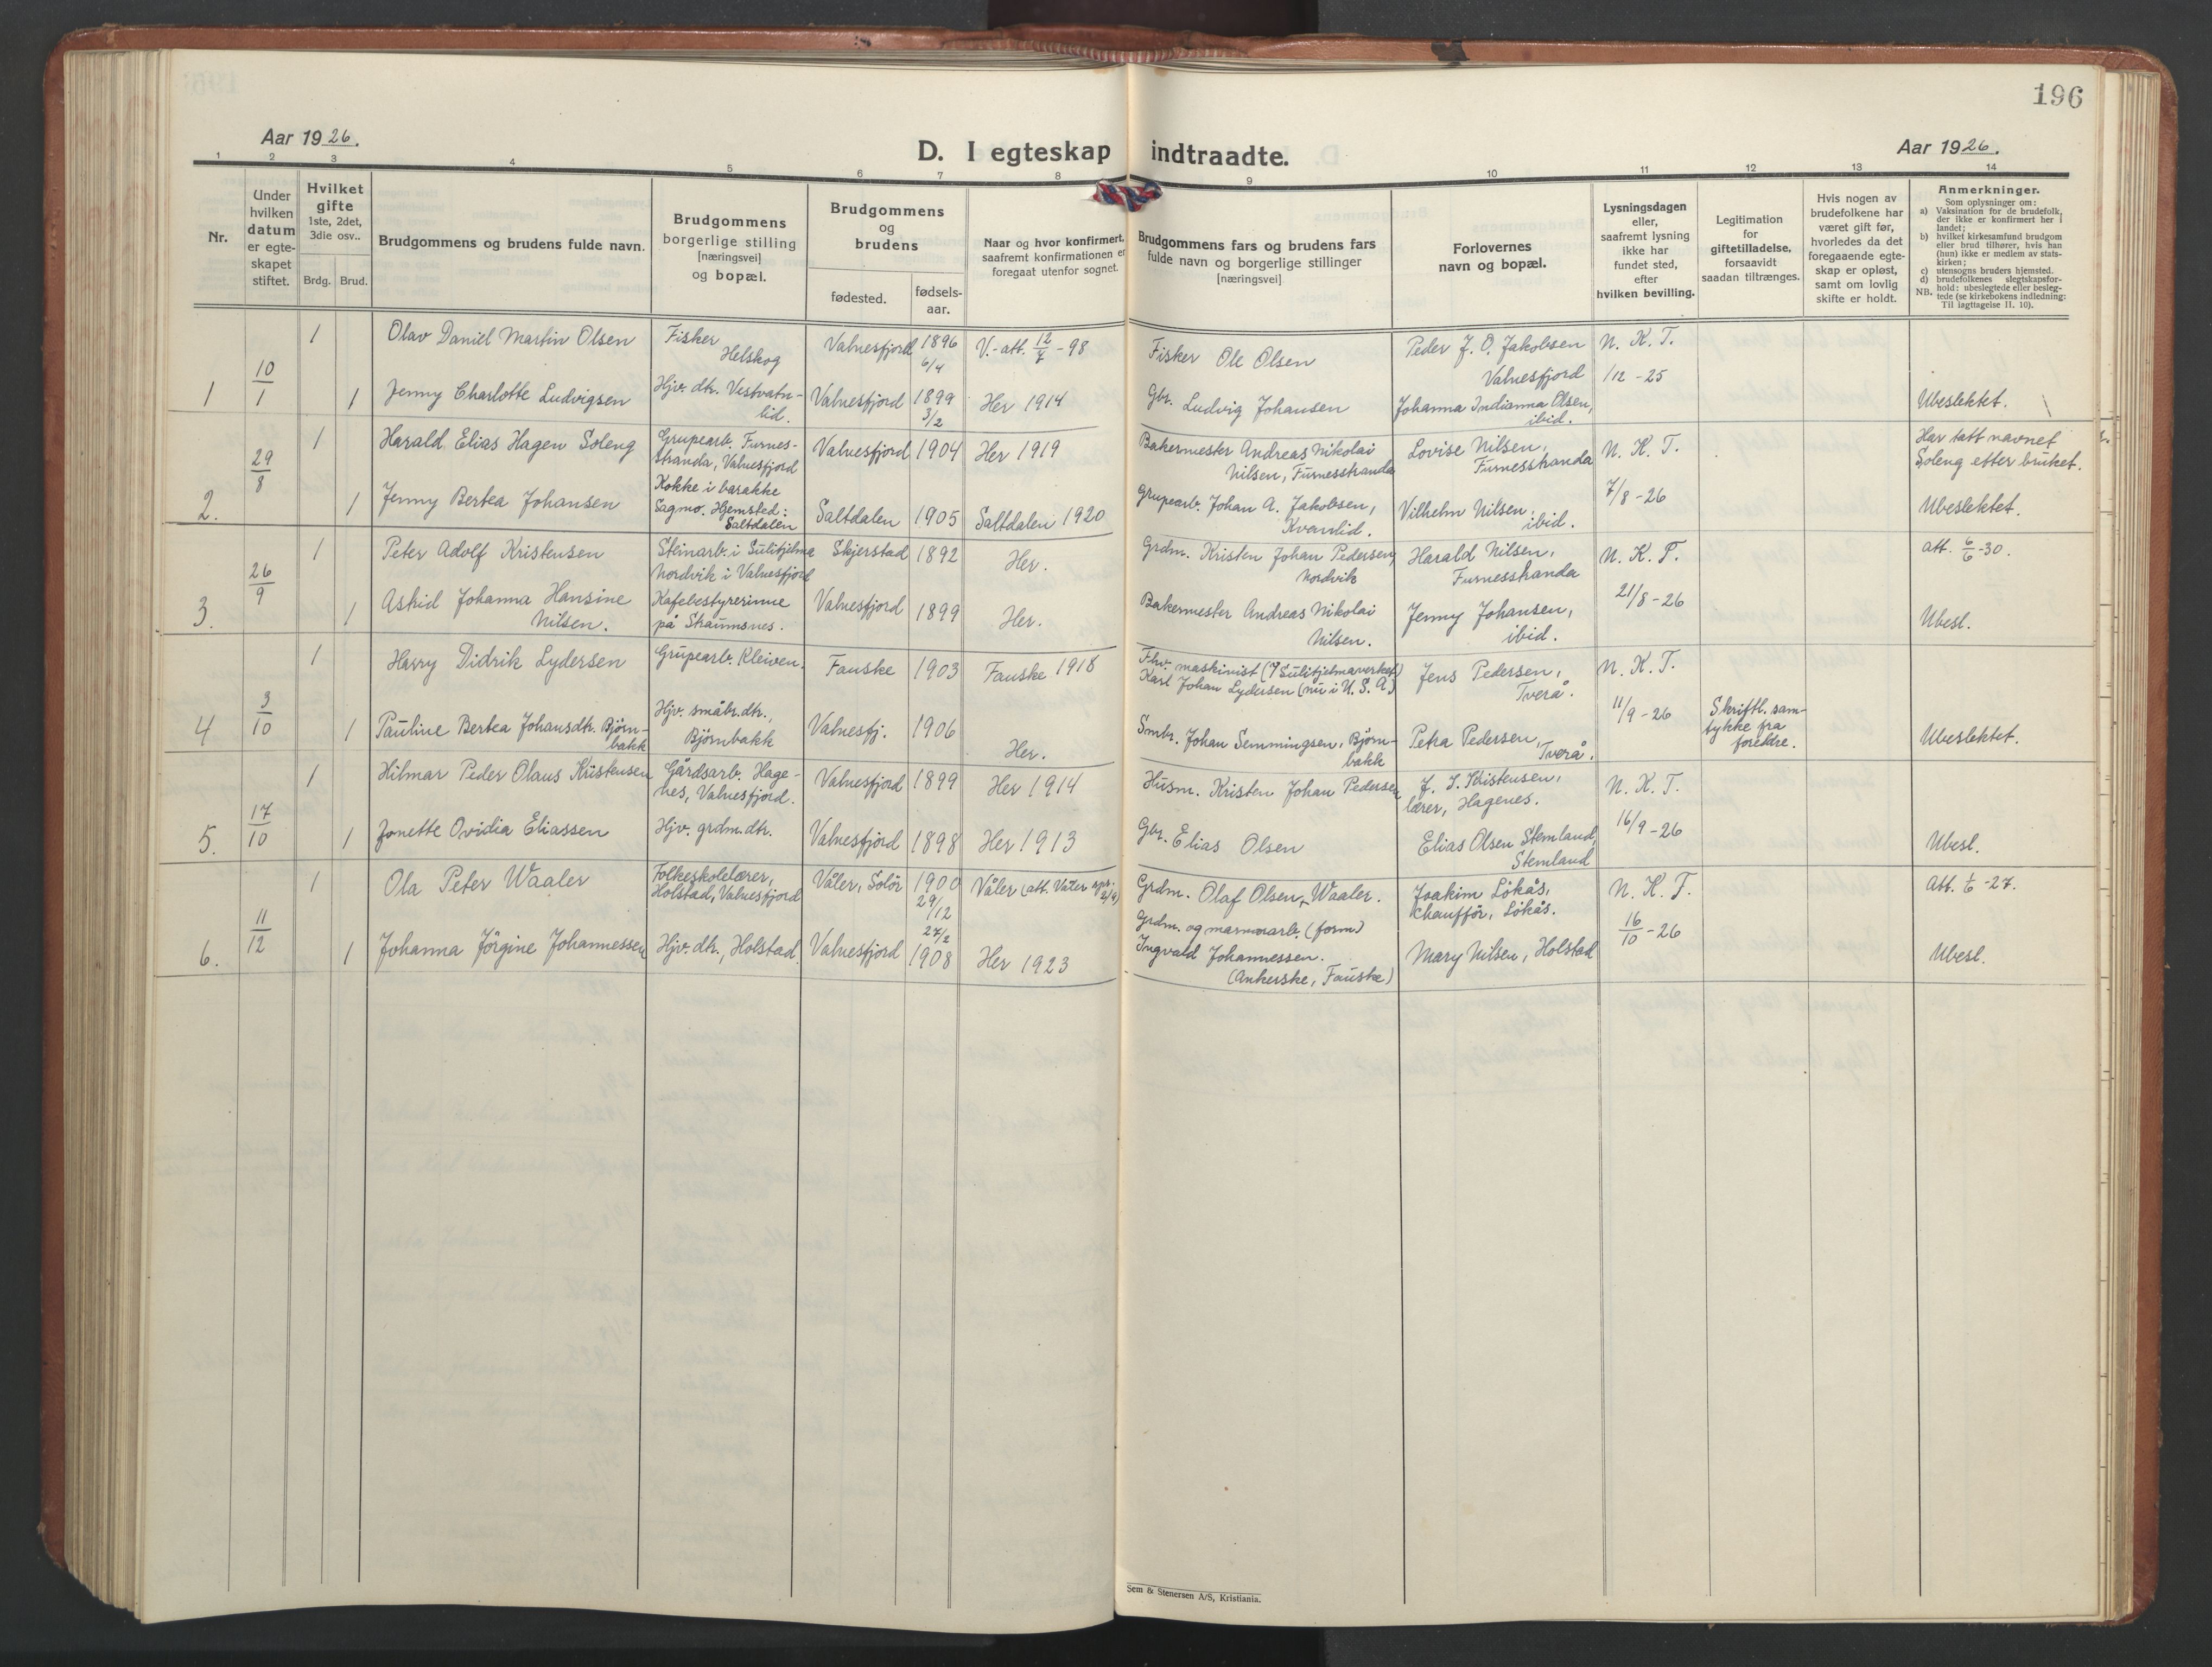 196
Aar 1926.
D. I egteskap indtraadte.
Aar 1926.
1 2 3 4 5 6 7 8 9 10 11 12 13 14
Nr.
Under
hvilken
datum
er egte-
skapet
stiftet.
Hvilket
gifte
1ste, 2det,
3die osv..
Brdg. Brud.
Brudgommens og brudens fulde navn.
Brudgommens
borgerlige stilling
[næringsvei]
og bopæl.
Brudgommens
og
brudens
fødested.
fødsels-
aar.
Naar og hvor konfirmert,
saafremt konfirmationen er
foregaat utenfor sognet.
Brudgommens fars og brudens fars
fulde navn og borgerlige stillinger
[næringsvei]
Forlovernes
navn og bopæl.
Lysningsdagen
eller,
saafremt lysning
ikke har
fundet sted,
efter
hvilken bevilling.
Legitimation
for
giftetilladelse,
forsaavidt
saadan tiltrænges.
Hvis nogen av
brudefolkene har
været gift før,
hvorledes da det
foregaaende egte-
skap er opløst,
samt om lovlig
skifte er holdt.
Anmerkninger.
Som oplysninger om:
a) Vaksination for de brudefolk,
der ikke er konfirmert her i
landet;
b) hvilket kirkesamfund brudgom
eller brud tilhører, hvis han
(hun) ikke er medlem av stats-
kirken;
c) utensogns bruders hjemsted.
d) brudefolkenes slegtskapsfor-
hold: ubeslegtede eller besleg-
NB. tede (se kirkebokens indledning:
Til iagttagelse II. 10).
1
10/1
1
Olav Daniel Martin Olsen
Fisker
Helskog
Valnesfjord
1896
6/4
V.-att. 12/7 -98
Fisker Ole Olsen
Peder J. O. Jakobsen
Valnesfjord
N. K. T.
1/12 -25
1
Jenny Charlotte Ludvigsen
Hjv. dtr. Vestvatn-
lid.
Valnesfjord
1899
3/2
Her 1914
Gbr. Ludvig Johansen
Johanna Indianna Olsen,
ibid.
Ubeslektet.
2.
29/8
1
Harald Elias Hagen Soleng
Grupearb. Furnes-
stranda, Valnesfjord
Valnesfjord
1904
Her 1919
Bakermester Andreas Nikolai
Nilsen, Furnesstranda
Lovise Nilsen,
Furnesstranda
N. K. T.
7/8 -26
Har tatt navnet
Soleng efter bruket.
1
Jenny Bertea Johansen
Kokke i barakke
Sagmo. Hjemsted:
Saltdalen
Saltdalen
1905
Saltdalen 1920
Grupearb. Johan A. Jakobsen,
Kvanlid.
Vilhelm Nilsen,
ibid.
Ubeslektet.
3.
26/9
1
Peter Adolf Kristensen
Steinarb. i Sulitjelma
Nordvik i Valnesfjord
Skjerstad
1892
Her.
Grdm. Kristen Johan Pedersen,
Nordvik
Harald Nilsen,
Furnesstranda
N. K. T.
21/8 -26
att. 6/6 -30.
1
Astrid Johanna Hansine
Nilsen.
Kafebestyrerinne
på Straumsnes.
Valnesfjord
1899
Her.
Bakermester Andreas Nikolai
Nilsen.
Jenny Johansen,
ibid.
Ubesl.
4
3/10
1
Harry Didrik Lydersen
Grupearb. Kleiven.
Fauske
1903
Fauske 1918
Fhv. maskinist (v/ Sulitjelmaverket)
Karl Johan Lydersen (nu i U. S. A.)
Jens Pedersen,
Tverå.
N. K. T.
11/9 -26
Skriftl. sam-
tykke fra
foreldre.
1
Pauline Bertea Johansdtr. Bjørn-
bakk
Hjv. småbr. dtr.,
Bjørnbakk
Valnesfj.
1906
Her.
Smbr. Johan Semmingsen, Bjørn-
bakk
Petra Pedersen,
Tverå.
Ubeslektet.
5.
17/10
1
Hilmar Peder Olaus Kristensen
Gårdsarb. Hage-
nes, Valnesfjord.
Valnesfjord
1899
Her 1914
Husm. Kristen Johan Pedersen
J. S. Kristensen,
lærer, Hagenes.
N. K. T.
16/9 -26
1
Jonette Ovidia Eliassen
Hjv. grdm. dtr.
Valnesfjord
1898
Her 1913
Gbr. Elias Olsen
Elias Olsen Stemland,
Stemland
Ubesl.
6.
11/12
1
Ola Peter Waaler
Folkeskolelærer,
Holstad, Valnesfjord
Våler, Solör
1900
29/12
Våler (att. Våler spr. 2/9)
Grdm. Olaf Olsen Waaler.
Joakim Lökås,
Chauffør, Lökås.
N. K. T.
16/10 -26
Att. 1/6 -27.
1
Johanna Jörgine Johannessen
Hjv. dtr., Holstad.
Valnesfjord
27/2
1908
Her 1923
Grdm. og marmorarb. (form)
Ingvald Johannessen.
(Ankerske, Fauske)
Mary Nilsen, Holstad
Ubesl.
Sem & Stenersen A/S, Kristiania.